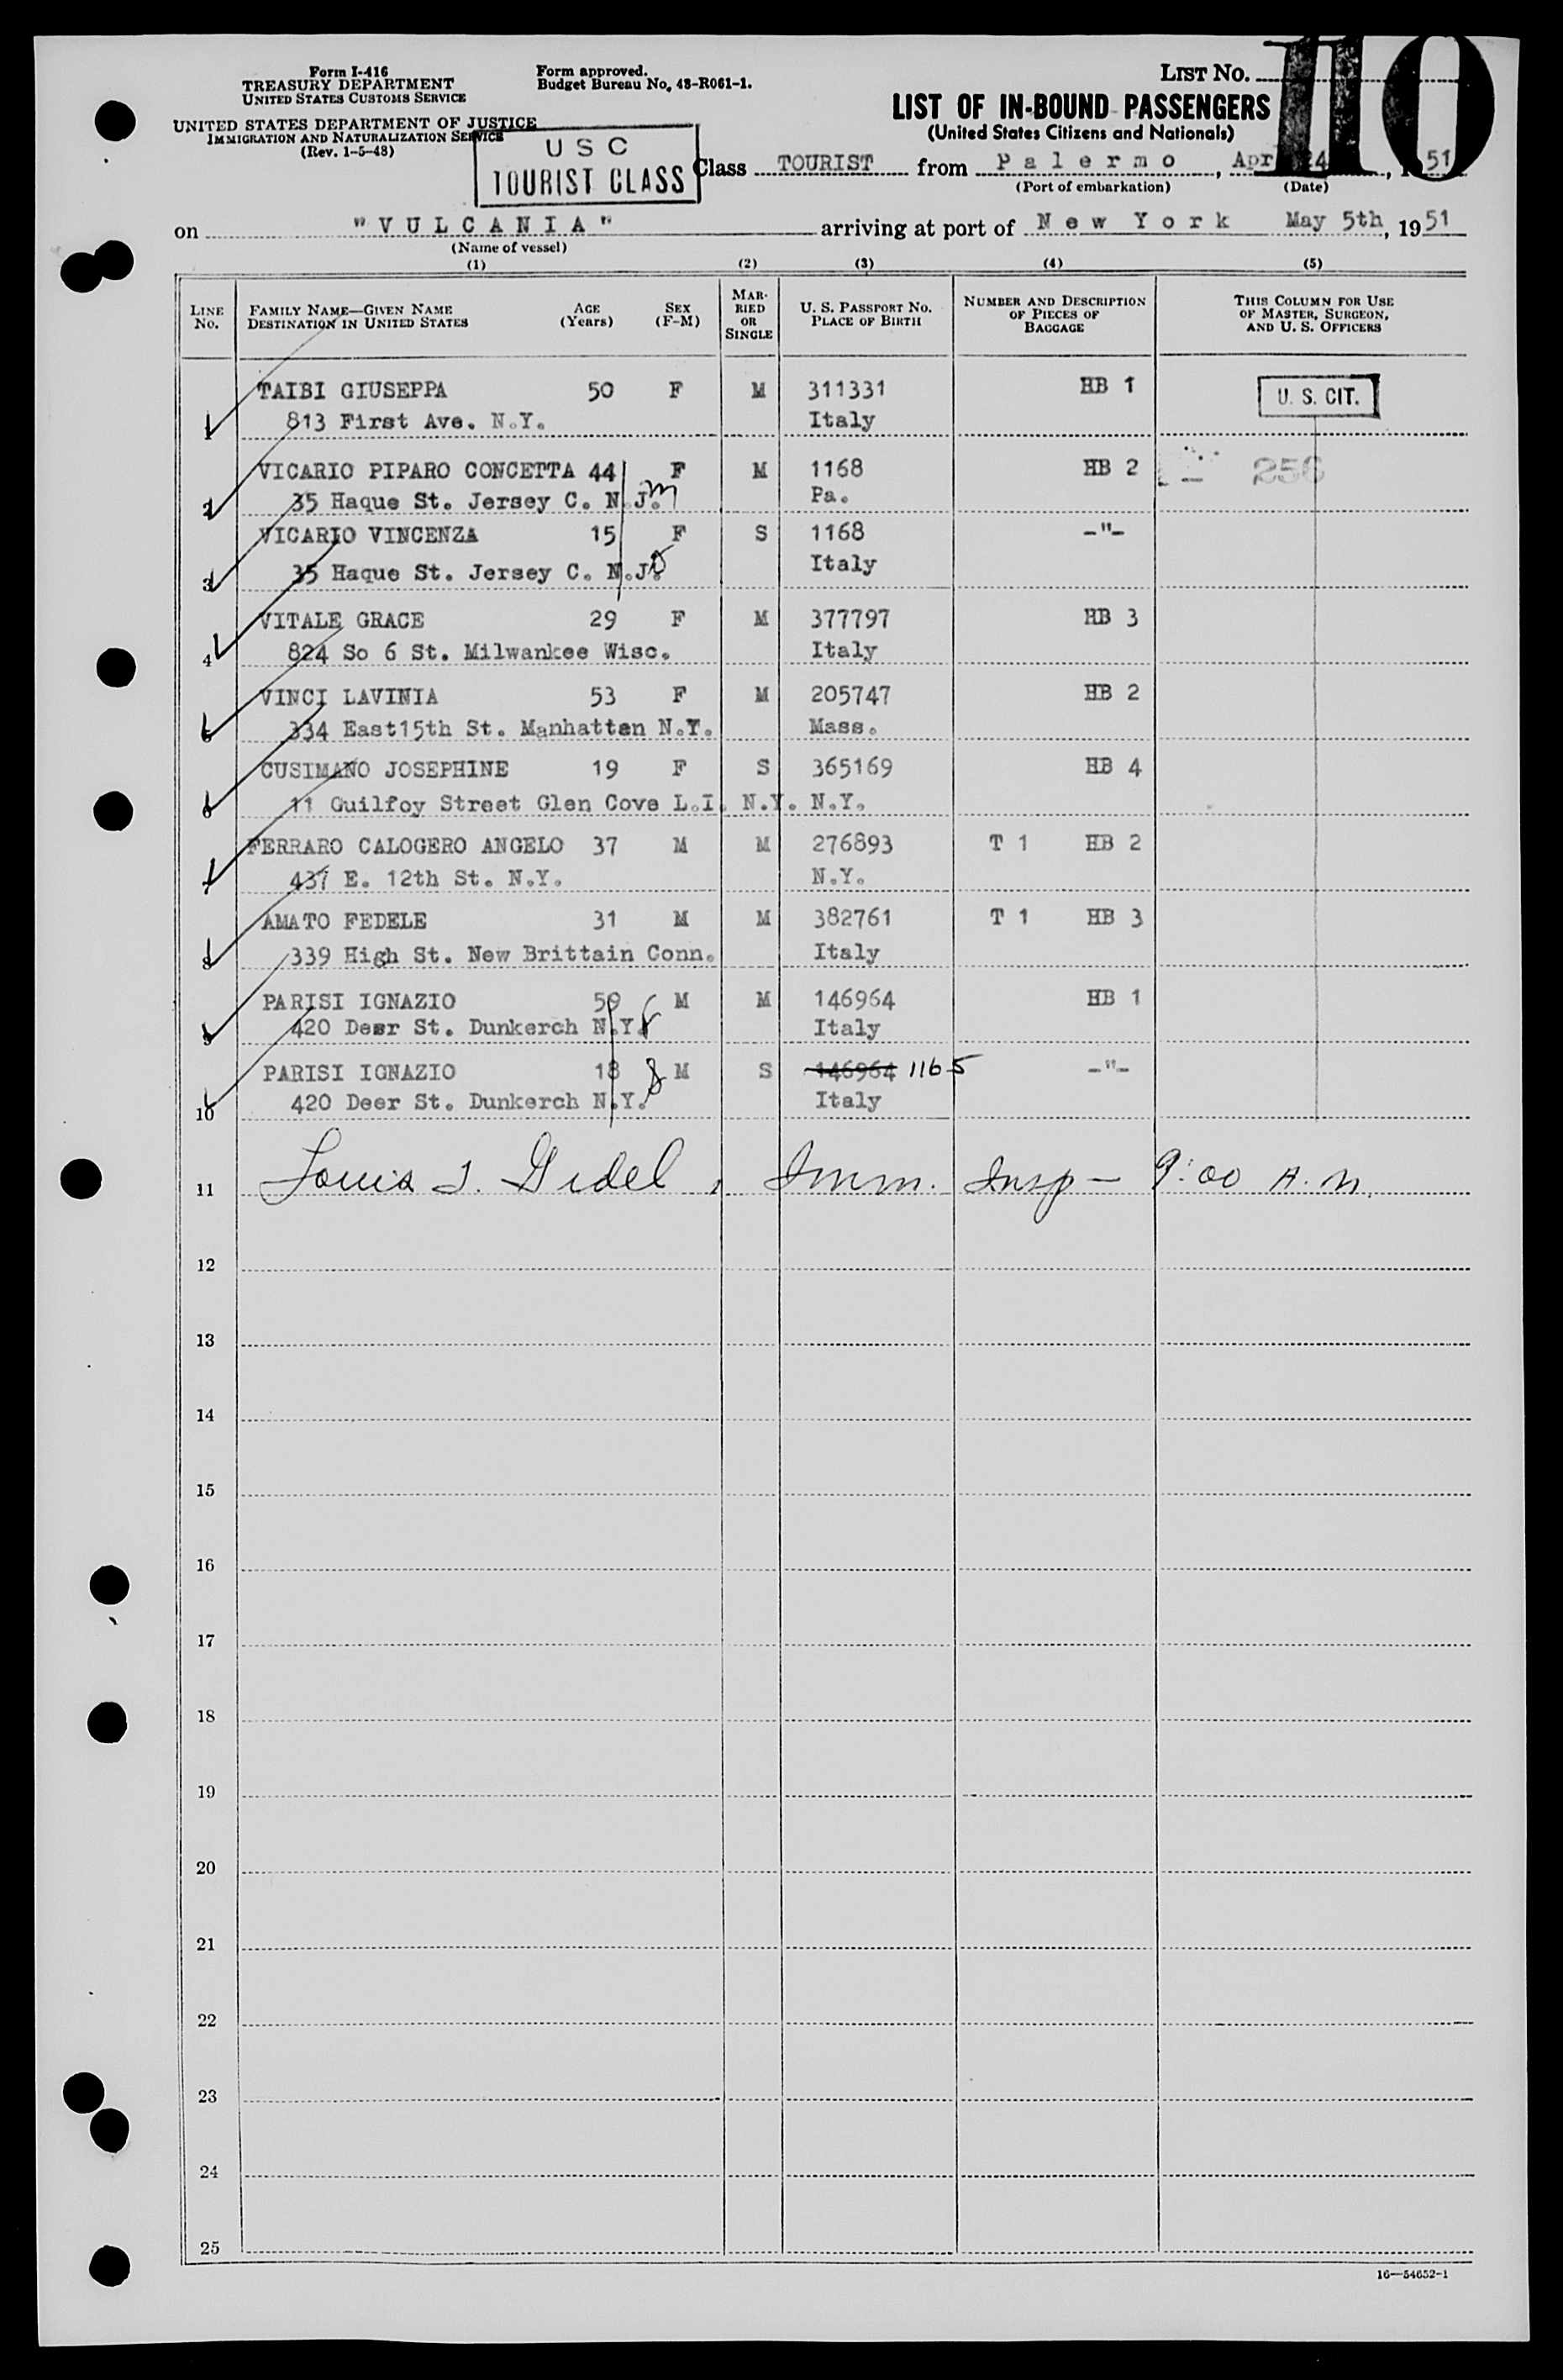 Form I-416
TREASURY DEPARTMENT
UNITED STATES CUSTOMS SERVICE
UNITED STATES DEPARTMENT OF JUSTICE
IMMIGRATION AND NATURALIZATION SERVICE
(Rev. 1-5-48)
Form approved.
Budget Bureau No. 43-R061-1.
U S C
TOURIST CLASS
LIST No.
110
LIST OF IN-BOUND PASSENGERS
(United States Citizens and Nationals)
Class TOURIST from Palermo, Apr 24, 1951
(Port of embarkation) (Date)
on "VULCANIA" arriving at port of New York May 5th, 1951
(Name of vessel)
(1) (2) (3) (4) (5)
LINE No. FAMILY NAME—GIVEN NAME DESTINATION IN UNITED STATES AGE (Years) SEX (F-M) MARRIED OR SINGLE U. S. PASSPORT NO. PLACE OF BIRTH NUMBER AND DESCRIPTION OF PIECES OF BAGGAGE THIS COLUMN FOR USE OF MASTER, SURGEON, AND U. S. OFFICERS
TAIBI GIUSEPPA 50 F M 311331 HB 1 U. S. CIT.
1 813 First Ave. N.Y. Italy
VICARIO PIPARO CONCETTA 44 F M 1168 HB 2 256
2 35 Haque St. Jersey C. N.J. m Pa.
VICARIO VINCENZA 15 F S 1168 -"-
3 35 Haque St. Jersey C. N.J. Italy
VITALE GRACE 29 F M 377797 HB 3
4 824 So 6 St. Milwankee Wisc. Italy
VINCI LAVINIA 53 F M 205747 HB 2
5 334 East15th St. Manhatten N.Y. Mass.
CUSIMANO JOSEPHINE 19 F S 365169 HB 4
6 11 Guilfoy Street Glen Cove L.I. N.Y. N.Y.
FERRARO CALOGERO ANGELO 37 M M 276893 T 1 HB 2
7 437 E. 12th St. N.Y. N.Y.
AMATO FEDELE 31 M M 382761 T 1 HB 3
8 339 High St. New Brittain Conn. Italy
PARISI IGNAZIO 50 M M 146964 HB 1
9 420 Deer St. Dunkerch N.Y. Italy
PARISI IGNAZIO 18 M S 146964 1165 -"-
10 420 Deer St. Dunkerch N.Y. Italy
11 Louis J. Gidel, Imm. Insp - 9:00 A.M.
12
13
14
15
16
17
18
19
20
21
22
23
24
25
16—54652-1